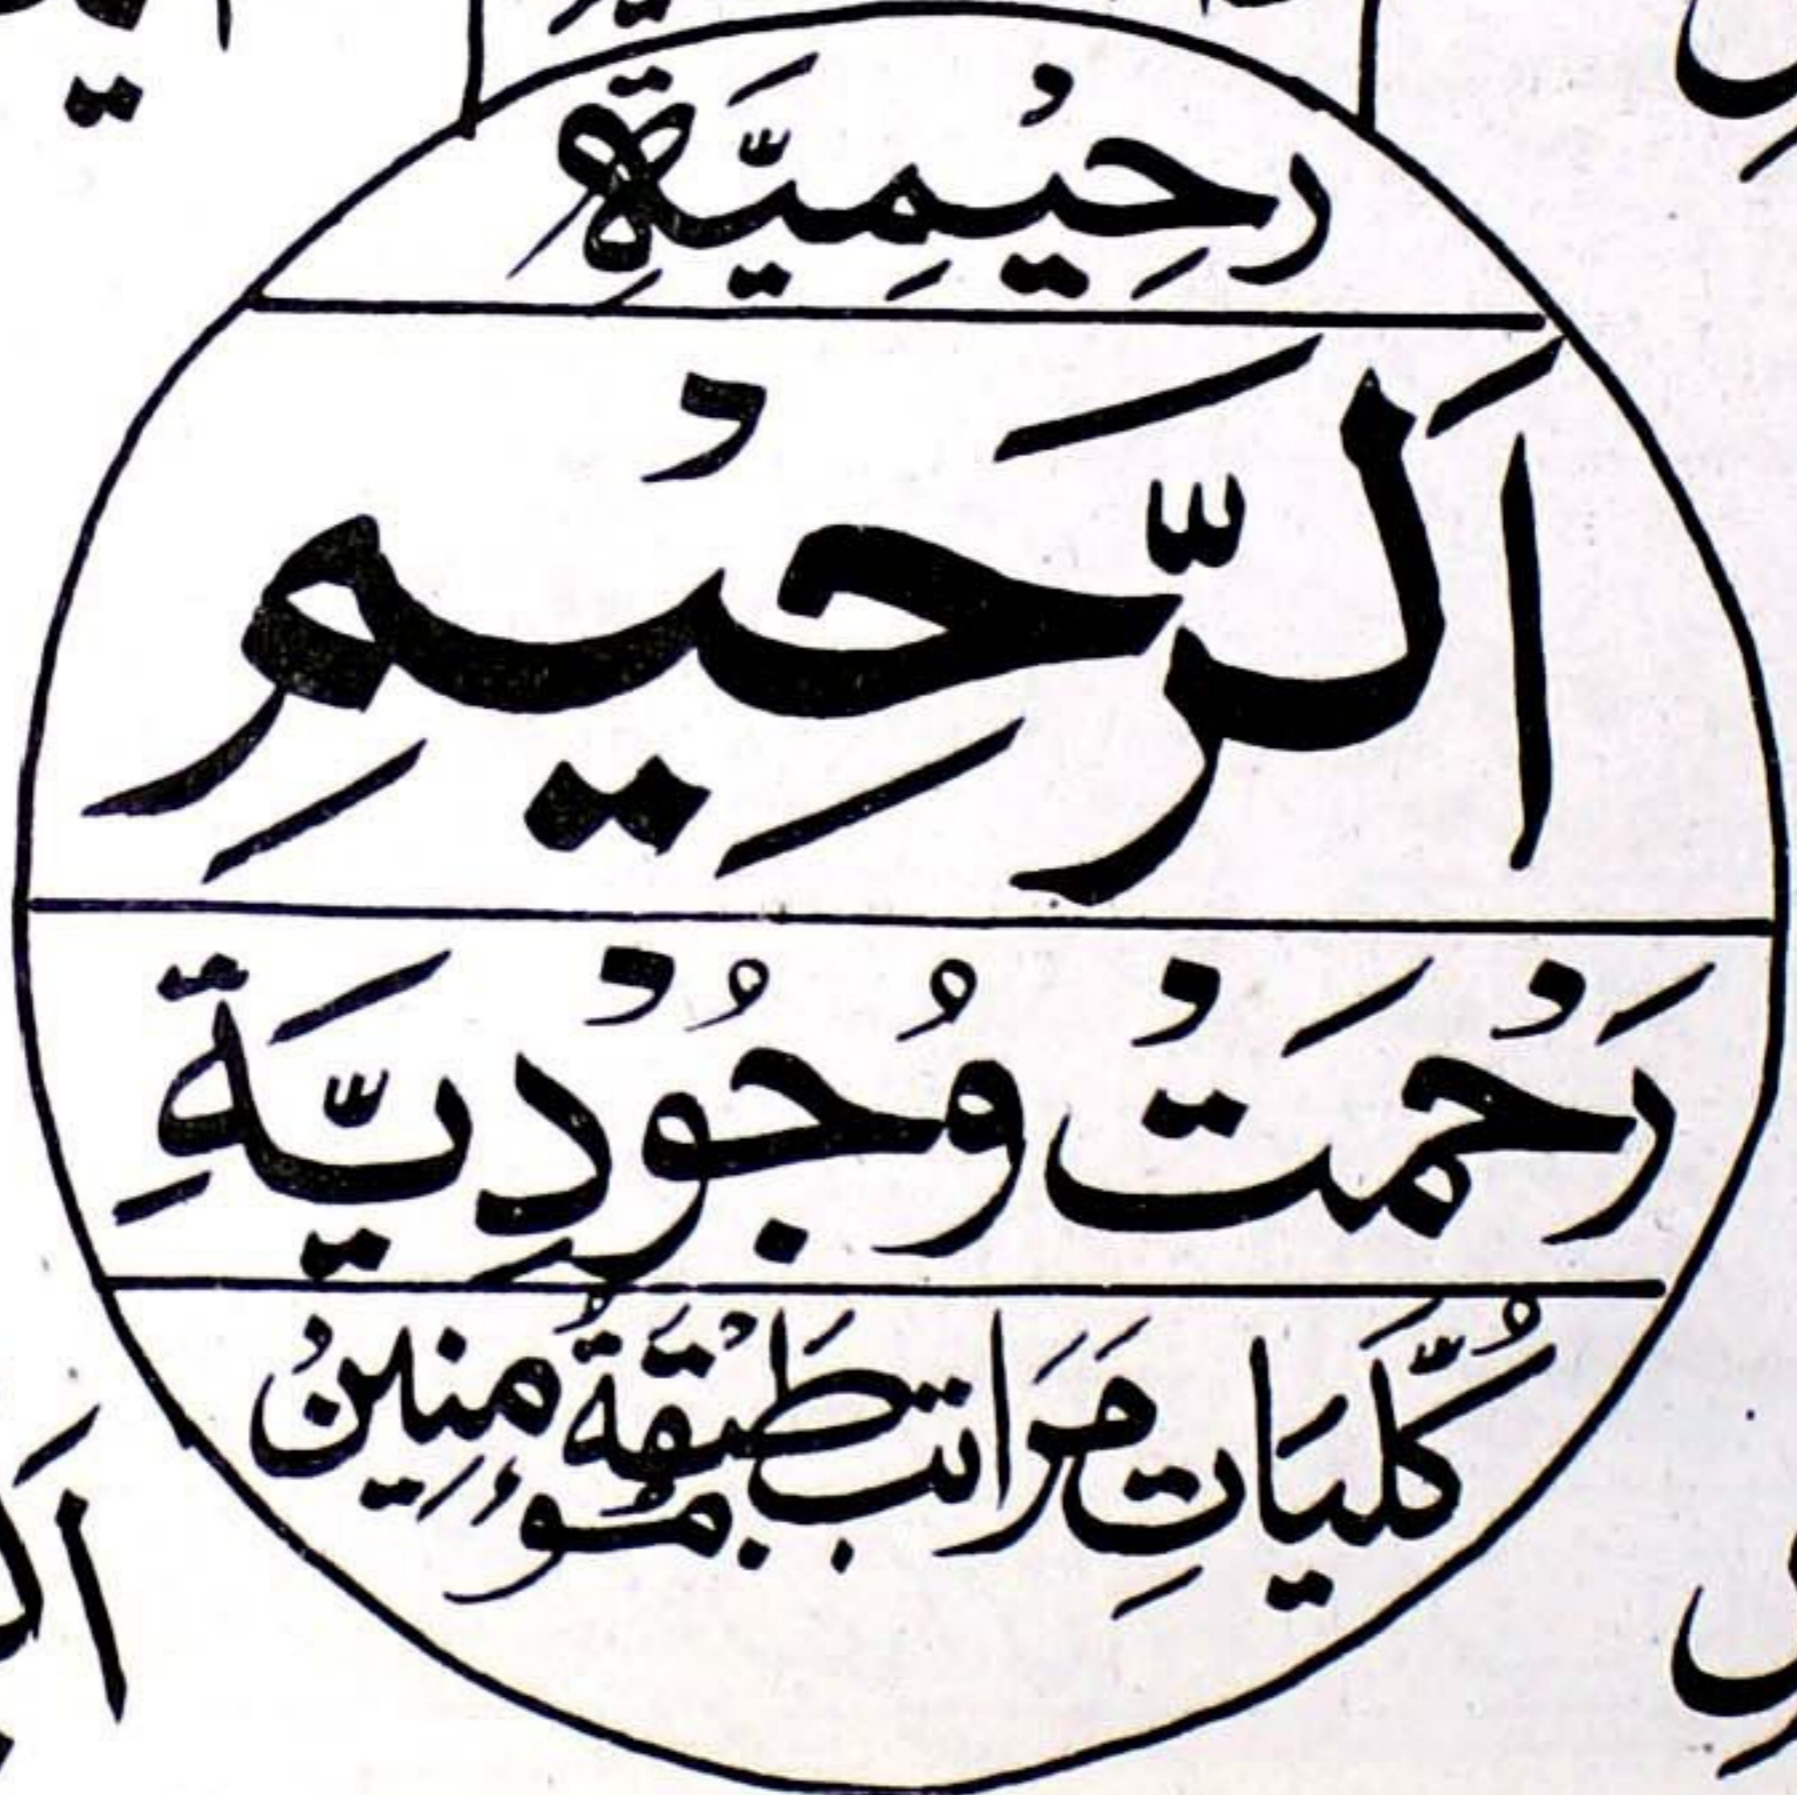 رَحِيْمِيَّةِ
اَلرَّحِيْمِ
رَحْمَتْ وُجُوْدِيَّةِ
كُلِّيَاتِ مَرَاتب طَبْقَةُ مُوْءمِنِينْ